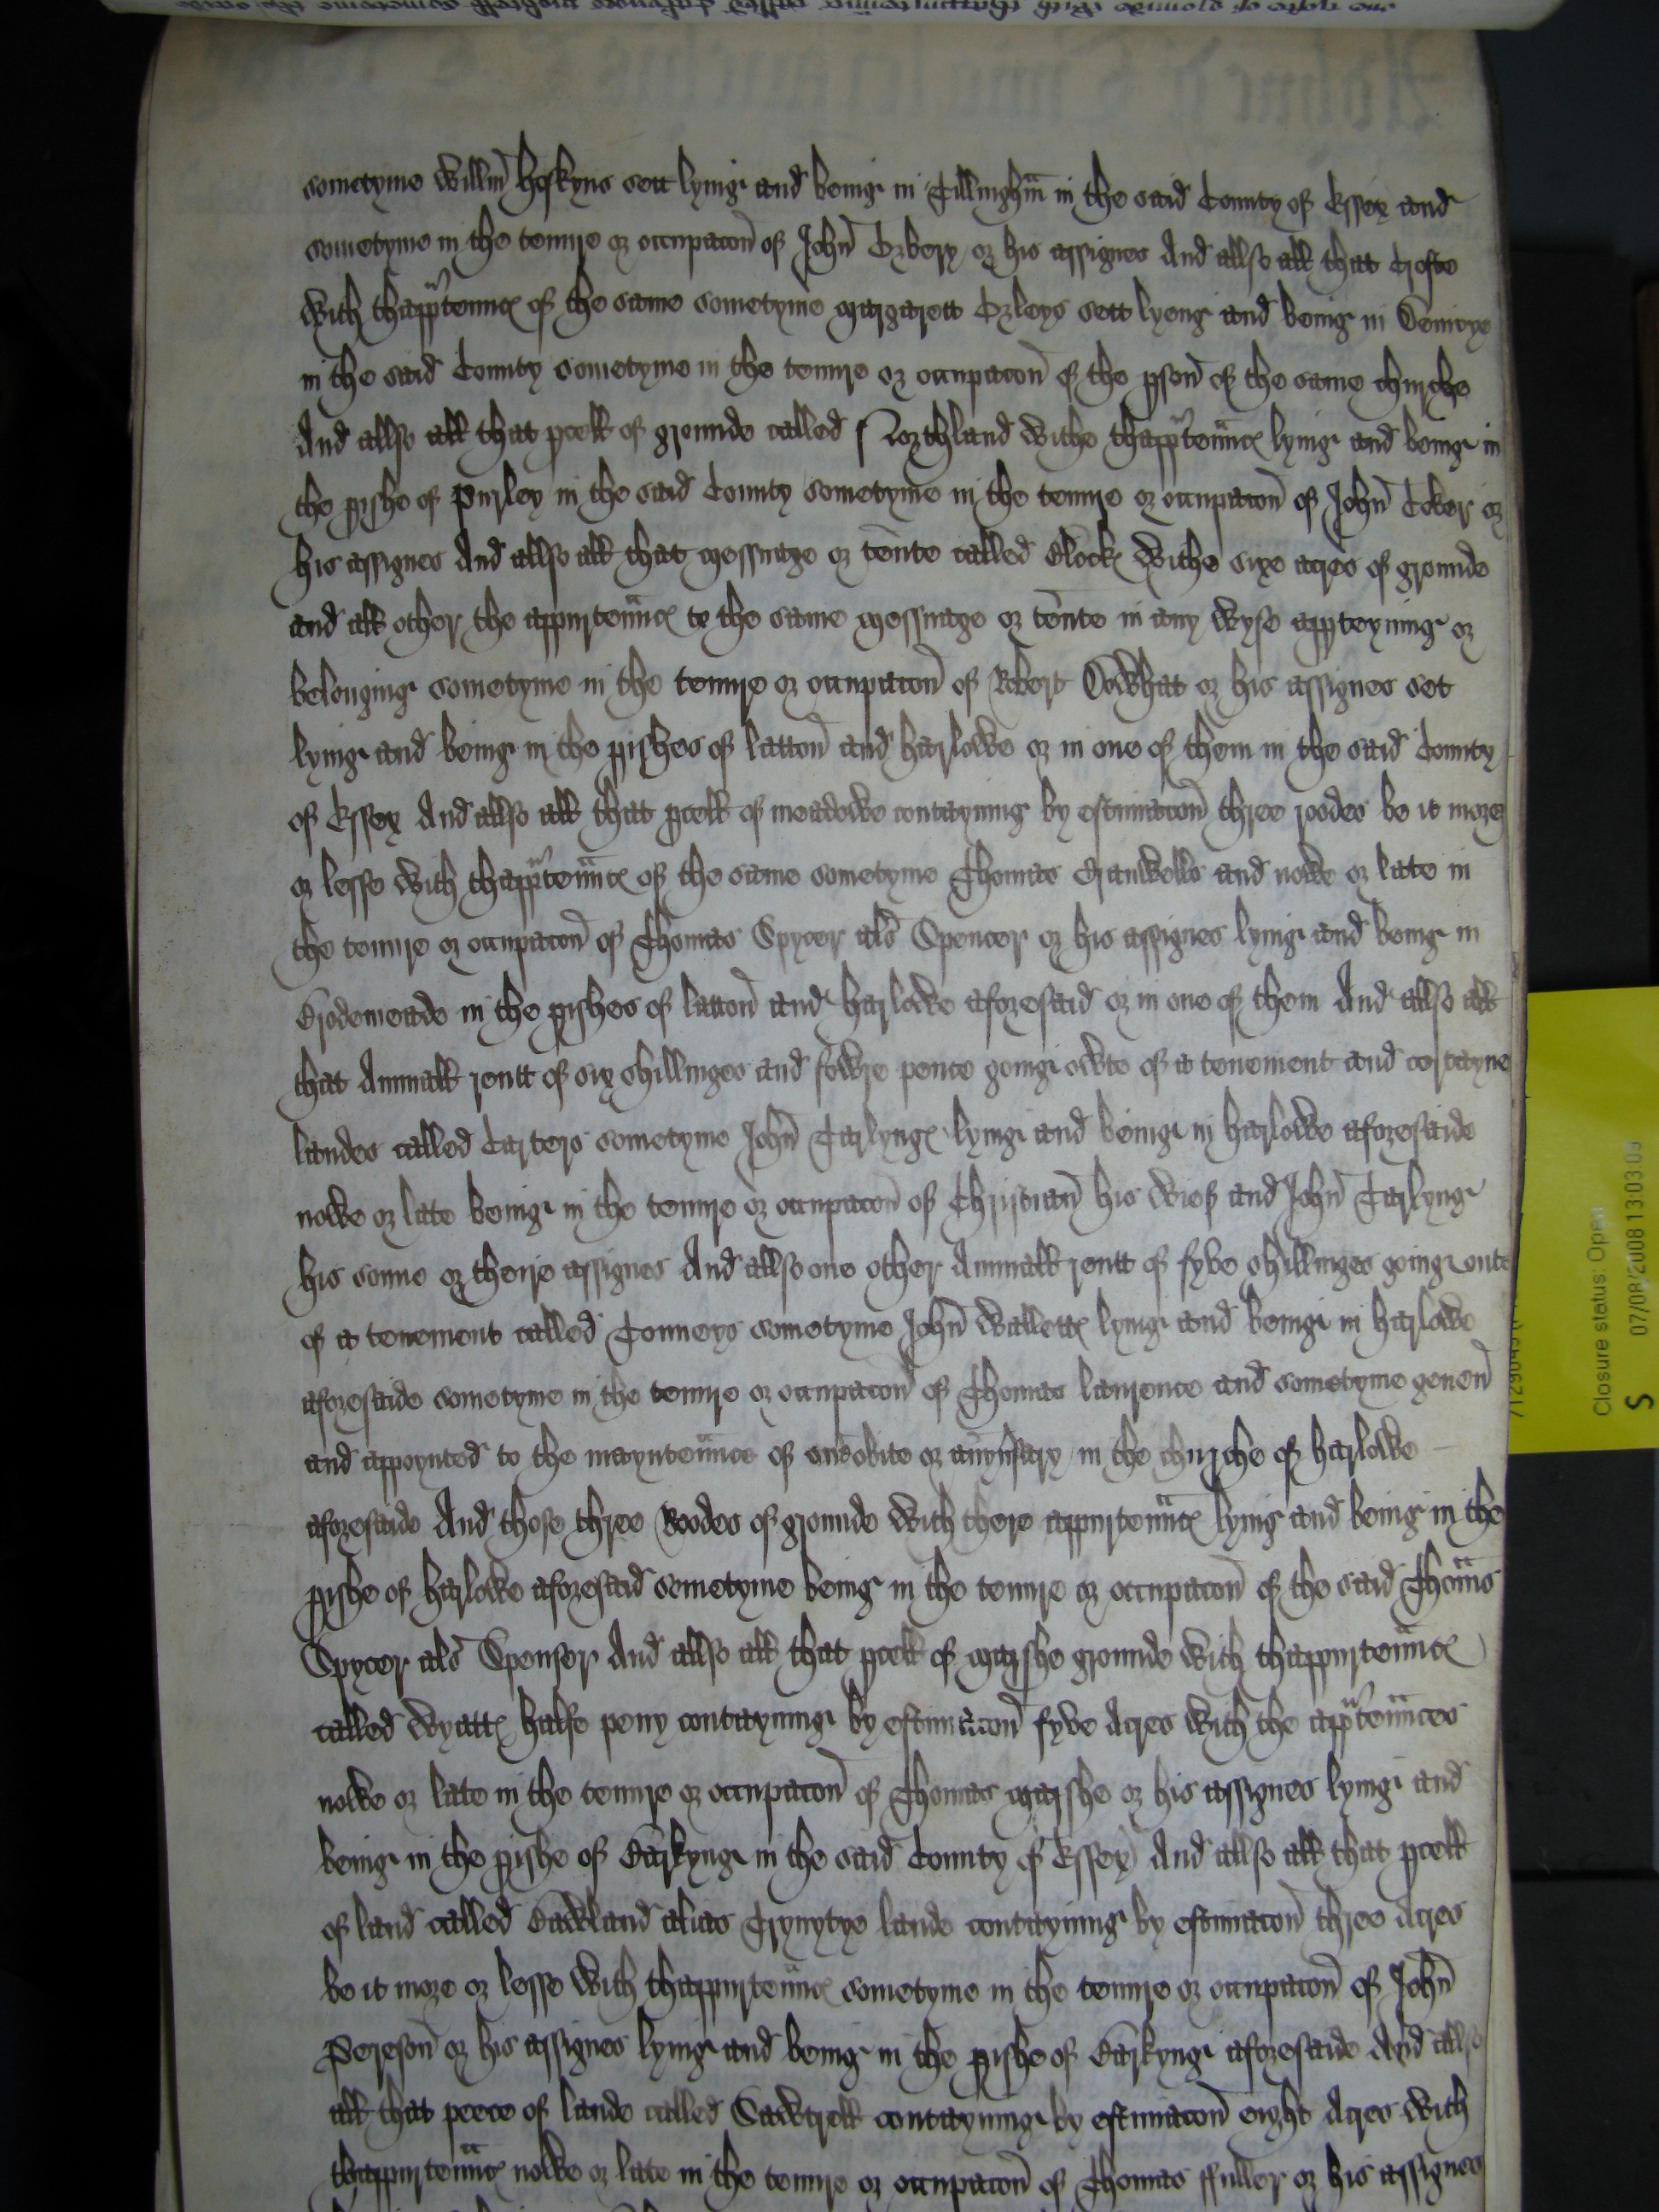 sometyme Willm Hoskyns sett lying and being in Tillinghm in the said County of Essex and
sometyme in the tenure or occupacon of John or his assignes And allso all that Crofte
with thapp'tennc of the same sometyme Margarett sett lyeng and being in
in the said County sometyme in the tenure or occupacon of the pson of the same churche
And allso all that pcell of grounde called Northland withe thapp'tennc lying and being in
the pishe of Purley in the said County sometyme in the tenure or occupacon of John Coker or
his assignes And allso all that messuage or tente called Block withe sixe acres of grounde
and all other the appurtennc to the same messuage or tente in any wyse appteyning or
belonging sometyme in the tenure or occupacon of Robert or his assignes set
lying and being in the pishes of latton and harlowe or in one of them in the said County
of Essex And allso all that pcell of meadowe contayning by estimacon three roodes be it more
or lesse with thapp'tennc of the same sometyme Thomas and nowe or late in
the tenure or occupacon of Thomas Spycer als Spencer or his assignes lying and being in
Brodemeade in the pishes of latton and harlowe aforesaid or in one of them And allso all
that Annuall rentt of six shillinges and fowre pence going owte of a tenement and certayne
landes called Carters sometyme John Tarlyng lying and being in harlowe aforesaide
nowe or late being in the tenure or occupacon of Christian his wief and John Tarlyng
his sonne or theire assignes And allso one other Annuall rentt of fyve shillinges going oute
of a tenement called Tonneys sometyme John Wallett lying and being in harlowe
aforesaide sometyme in the tenure or occupacon of Thomas laurence and sometyme geven
and appoynted to the mayntennce of one obite or annysary in the churche of harlowe
aforesaide And those three Roodes of grounde with there appurtennc lying and being in the
pishe of harlowe aforesaid sometyme being in the tenure or occupacon of the said Thoms
Spycer als Spenser And allso all that pcell of marshe grounde with thappurtennc
called Wyatt halfe peny contayning by estimacon fyve Acres with the app'tennces
nowe or late in the tenure or occupacon of Thomas marshe or his assignes lying and
being in the pishe of Barkyng in the said County of Essex And allso all that pcell
of land called Bawland alias Trynytye lande contayning by estimacon three Acres
be it more or lesse with thappurtennc sometyme in the tenure or occupacon of John
Pereson or his assignes lying and being in the pishe of Barkyng aforesaide And allso
all that peece of lande called contayning by estimacon eight Acres with
thappurtennc nowe or late in the tenure or occupacon of Thomas ffuller or his assignes
Closure status: Open
07/08/2008 13:03:03
S